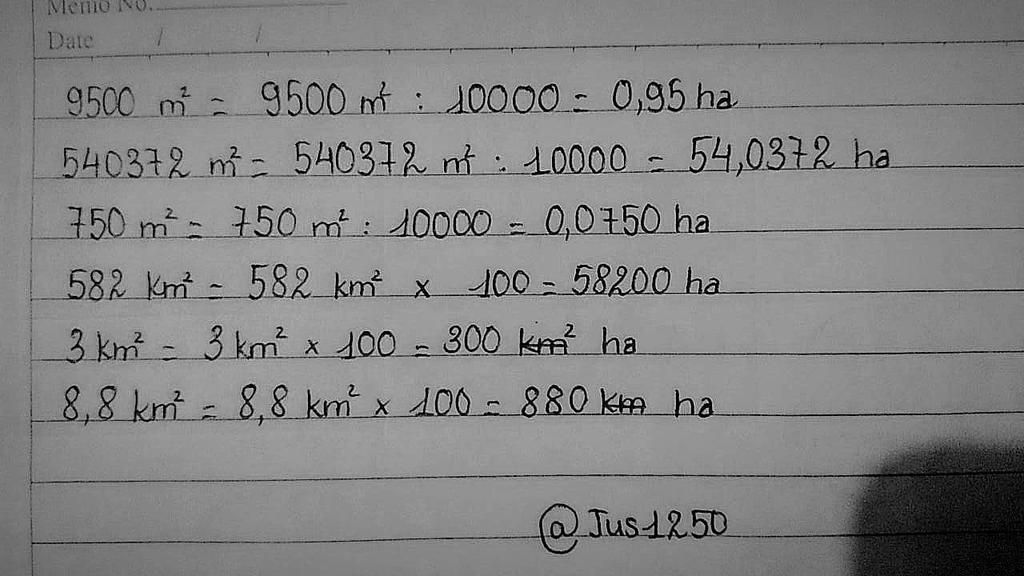 Memo No.
Date / /
9500 m² = 9500 m² : 10000 = 0,95 ha
540372 m² = 540372 m² : 10000 = 54,0372 ha
750 m² = 750 m² : 10000 = 0,0750 ha
582 km² = 582 km² x 100 = 58200 ha
3 km² = 3 km² x 100 = 300 km² ha
8,8 km² = 8,8 km² x 100 = 880 km ha
@Jus1250